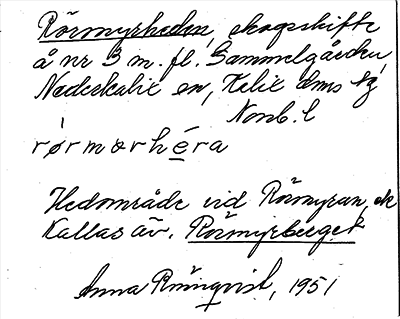 Rörmyrheden, skogsskifte
å nr 3 m. fl. Gammelgården,
Nederkalix sn, Kalix dms tg
Norrb. l
rørmørhéra
Hedområde vid Rörmyran, sk
Kallas äv. Rörmyrberget
Anna Rönnqvist, 1951